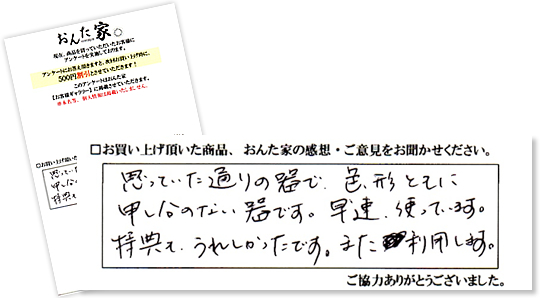 おんた家
現在、商品を買っていただいたお客様に
アンケートを実施しております。
アンケートにお答え頂きますと、次回お買い上げ時に、
500円割引とさせていただきます！
このアンケートはおんた家
【お客様ギャラリー】に掲載させていただきます。
※お名前、個人情報は掲載いたしません。
□お買い上げ頂いた商品、おんた家の感想・ご意見をお聞かせください。
思っていた通りの器で、色、形ともに
申し分のない器です。早速、使っています。
特典も、うれしかったです。また利用します。
ご協力ありがとうございました。
□お買い上げ頂い
思ってい
申し
特典も